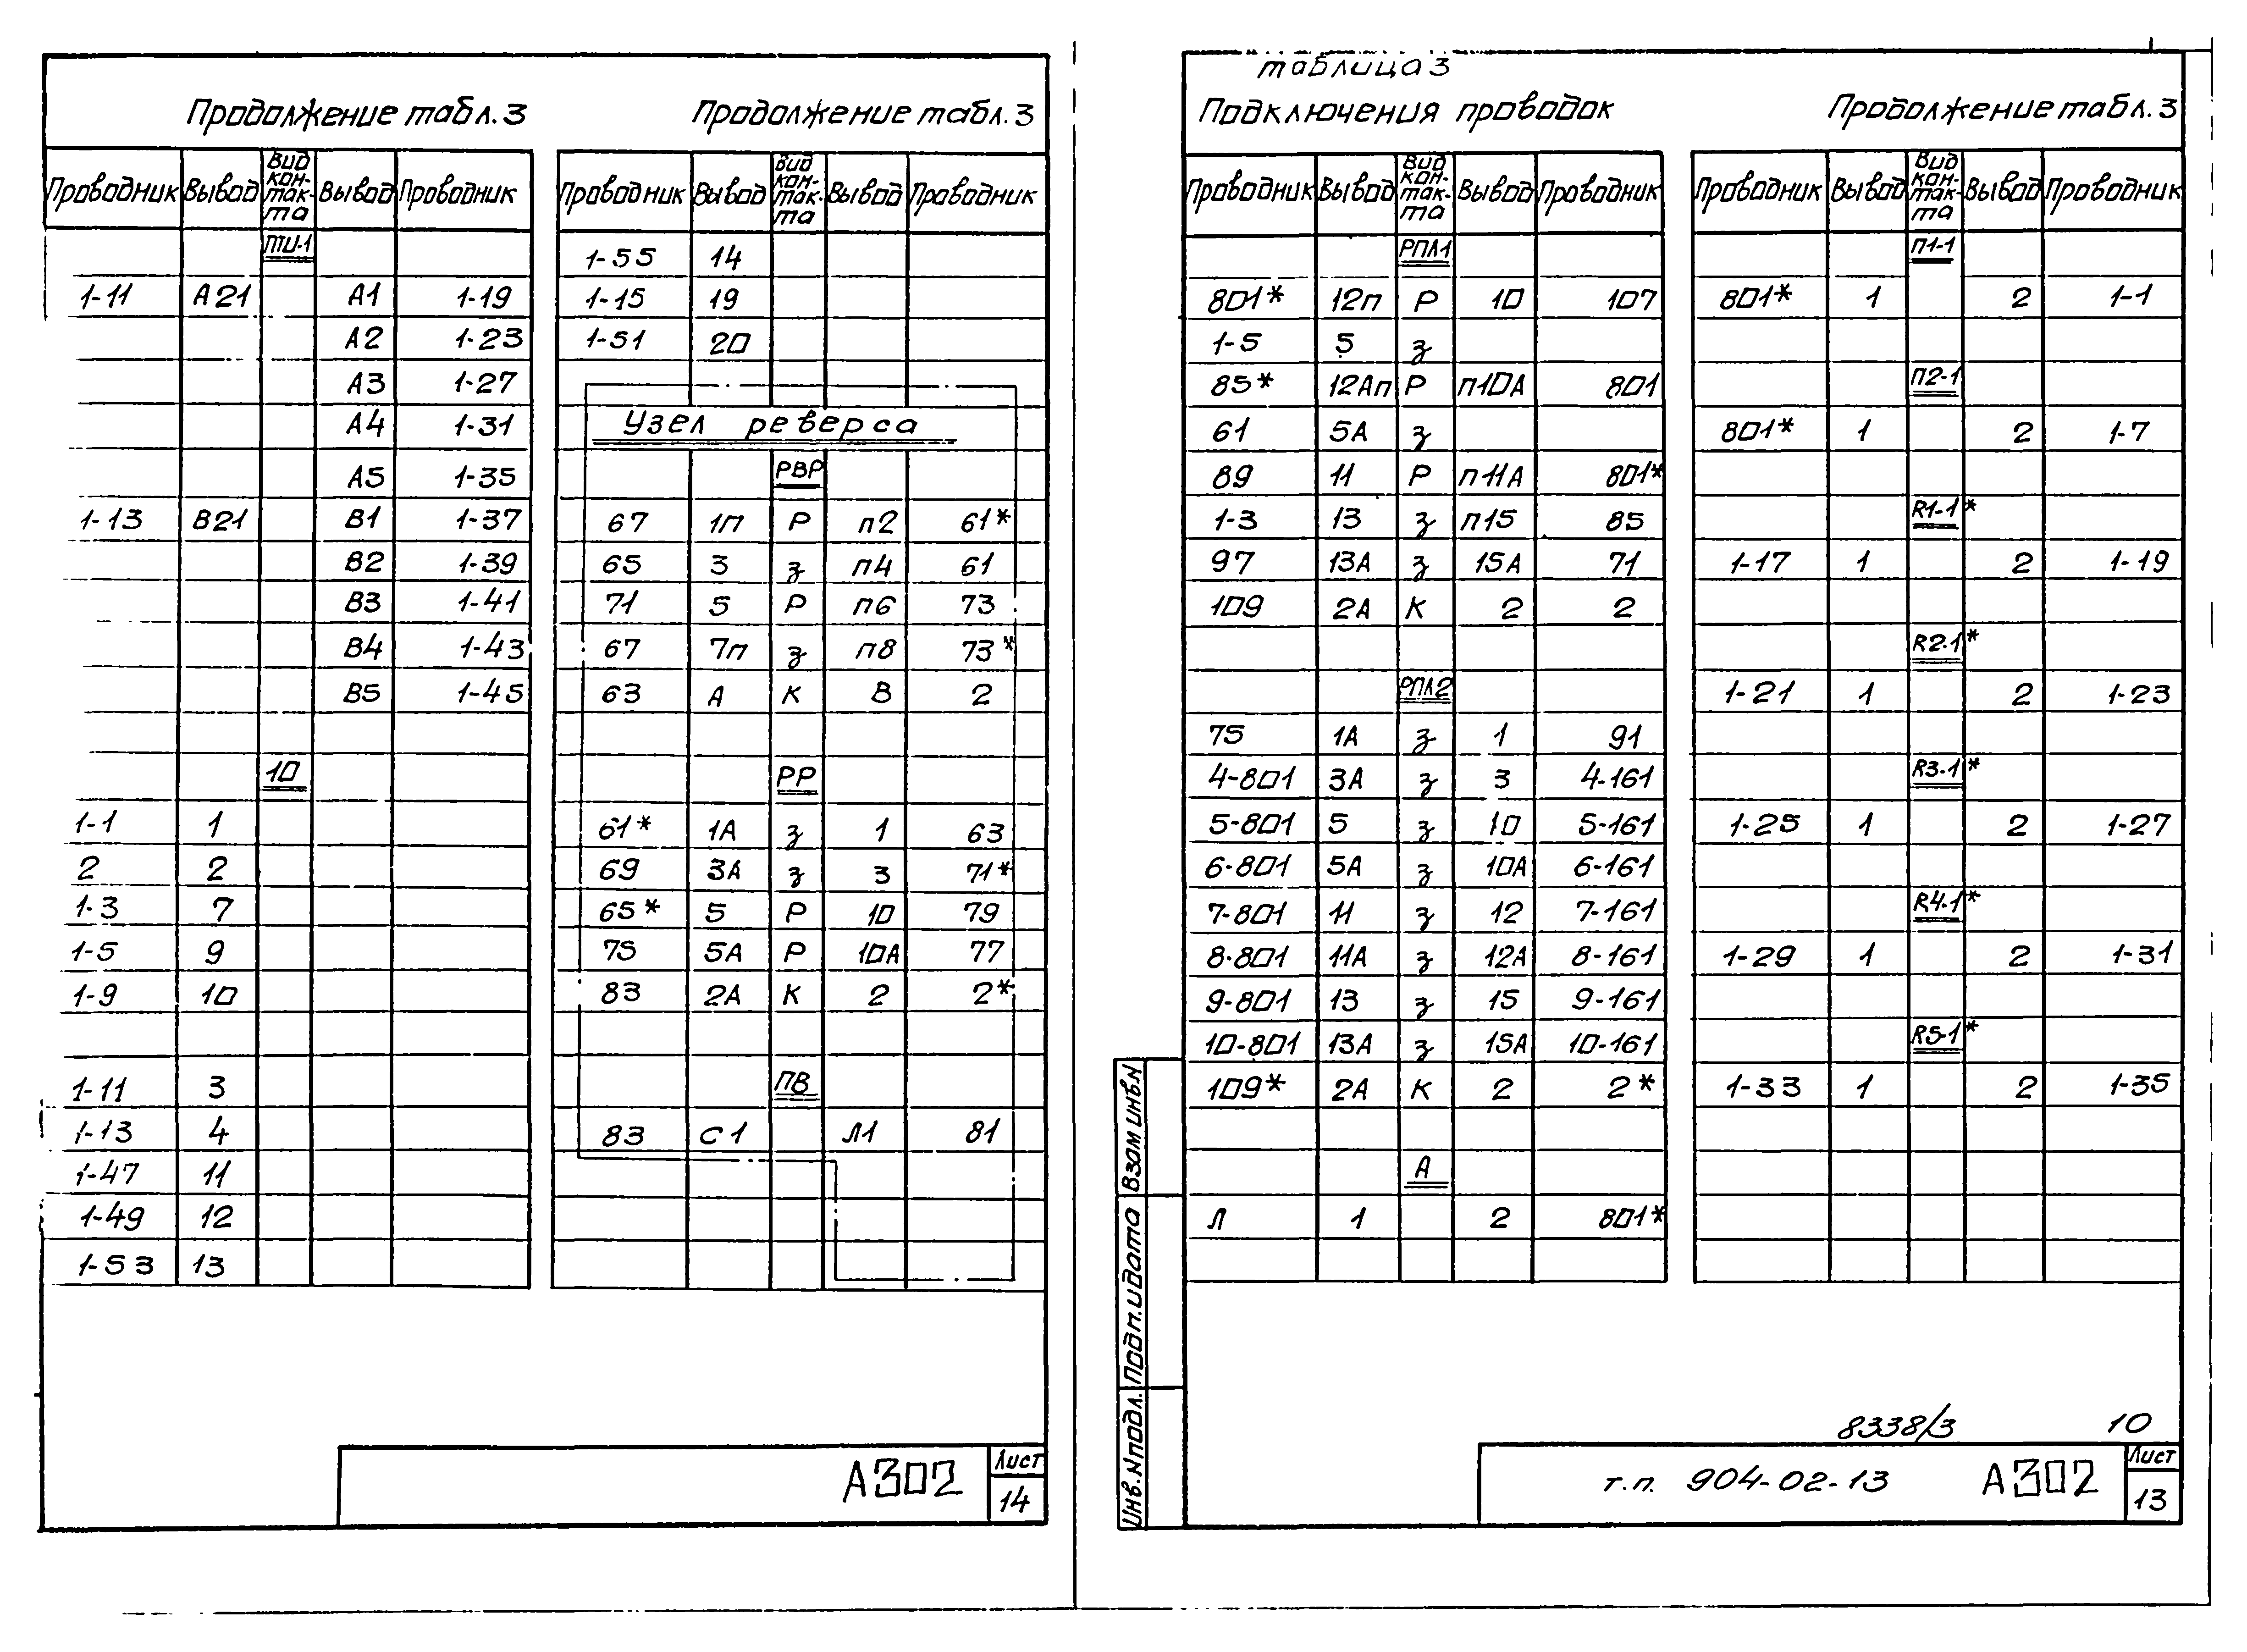 Продолжение табл.3
Проводник Вывод Вид кон-так-та Вывод Проводник
ПТИ-1
1-11 А21 А1 1-19
А2 1-23
А3 1-27
А4 1-31
А5 1-35
1-13 В21 В1 1-37
В2 1-39
В3 1-41
В4 1-43
В5 1-45
10
1-1 1
2 2
1-3 7
1-5 9
1-9 10
1-11 3
1-13 4
1-47 11
1-49 12
1-53 13
Продолжение табл.3
Проводник Вывод Вид кон-так-та Вывод Проводник
1-55 14
1-15 19
1-51 20
Узел реверса
РВР
67 1п Р п2 61*
65 3 з п4 61
71 5 Р п6 73
67 7п з п8 73*
63 А К В 2
РР
61* 1А з 1 63
69 3А з 3 71*
65* 5 Р 10 79
75 5А Р 10А 77
83 2А К 2 2*
ПВ
83 С1 Л1 81
А302
Лист
14
таблица3
Подключения проводок
Проводник Вывод Вид кон-так-та Вывод Проводник
РПЛ1
801* 12п Р 10 107
1-5 5 з
85* 12Ап Р п10А 801
61 5А з
89 11 Р п11А 801*
1-3 13 з п15 85
97 13А з 15А 71
109 2А К 2 2
РПЛ2
75 1А з 1 91
4-801 3А з 3 4-161
5-801 5 з 10 5-161
6-801 5А з 10А 6-161
7-801 11 з 12 7-161
8-801 11А з 12А 8-161
9-801 13 з 15 9-161
10-801 13А з 15А 10-161
109* 2А К 2 2*
А
Л 1 2 801*
Продолжение табл.3
Проводник Вывод Вид кон-так-та Вывод Проводник
П1-1
801* 1 2 1-1
П2-1
801* 1 2 1-7
R1-1*
1-17 1 2 1-19
R2-1*
1-21 1 2 1-23
R3-1*
1-25 1 2 1-27
R4-1*
1-29 1 2 1-31
R5-1*
1-33 1 2 1-35
Взам инв.N
Подп.идата
Инв.Nподл.
8338/3 10
т.п. 904-02-13 А302
Лист
13